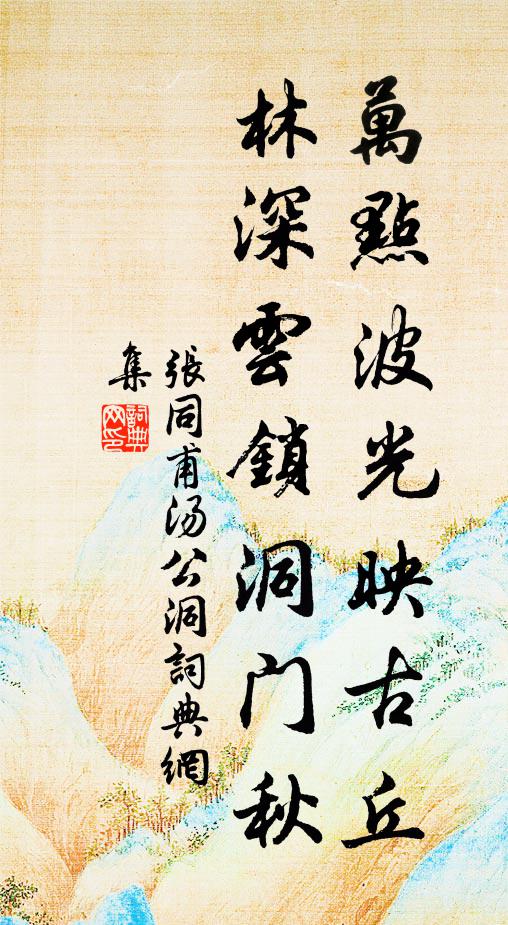 萬點波光映古丘
林深雲鎖洞门秋
張同甫汤公洞詞典網
集
詞典
网印